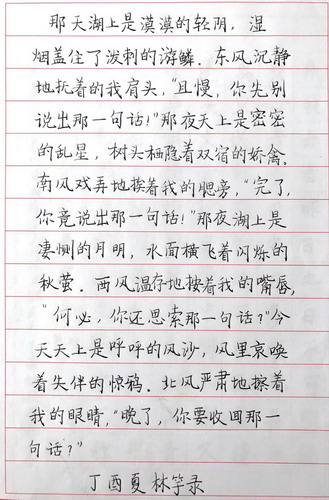 那天湖上是漠漠的轻阴，湿
烟盖住了泼刺的游鳞。东风沉静
地抚着的我肩头，“且慢，你先别
说出那一句话！”那夜天上是密密
的乱星，树头栖隐着双宿的娇禽。
南风戏弄地挨着我的腮旁，“完了，
你竟说出那一句话！”那夜湖上是
凄恻的月明，水面横飞着闪烁的
秋萤。西风温存地按着我的嘴唇，
“何必，你还思索那一句话？”今
天天上是呼呼的风沙，风里哀唤
着失伴的惊鸦。北风严肃地擦着
我的眼睛，“晚了，你要收回那一
句话？”
丁酉夏林竽录